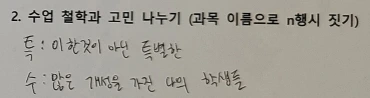 2. 수업 철학과 고민 나누기 (과목 이름으로 n행시 짓기)
특 : 이한것이 아닌 특별한
수 : 많은 개성을 가진 나의 학생들